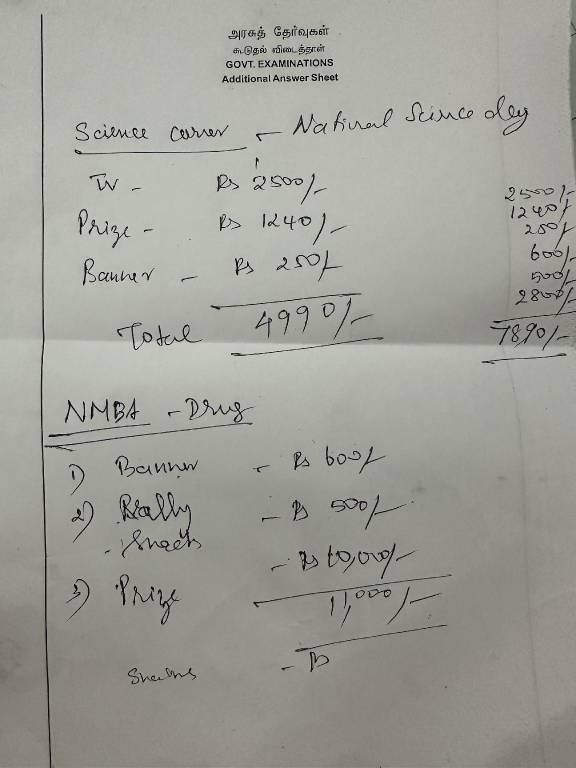 அரசுத் தேர்வுகள்
கூடுதல் விடைத்தாள்
GOVT. EXAMINATIONS
Additional Answer Sheet
Science corner - National Science day
TV - Rs 2500/-
Prize - Rs 1240/-
Banner - Rs 250/-
Total 4990/-
2500/-
1240/-
250/-
600/-
500/-
2800/-
7890/-
NMBA - Drug
1) Banner - Rs 600/-
2) Rally - Rs 500/-
- Snacks
3) Prize - Rs 10,000/-
11,000/-
- Rs